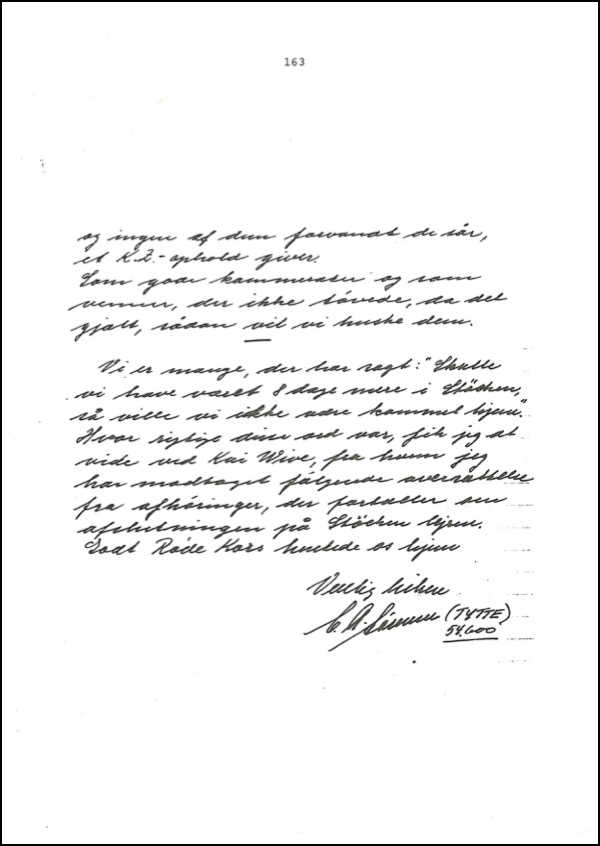 163
og ingen af dem forvandt de sår,
et K.Z.-ophold giver.
Som gode kammerater og som
venner, der ikke tøvede, da det
gjalt, sådan vil vi huske dem.
Vi er mange, der har sagt: "Skulle
vi have været 8 dage mere i Stöcken,
så ville vi ikke være kommet hjem".
Hvor rigtige disse ord var, fik jeg at
vide ved Kai Wive, fra hvem jeg
har modtaget følgende oversættelse
fra afhøringer, der fortæller om
afslutningen på Stöcken lejren.
Godt Røde Kors hentede os hjem
Venlig hilsen
C. A. Sörensen (TYTTE)
54.600